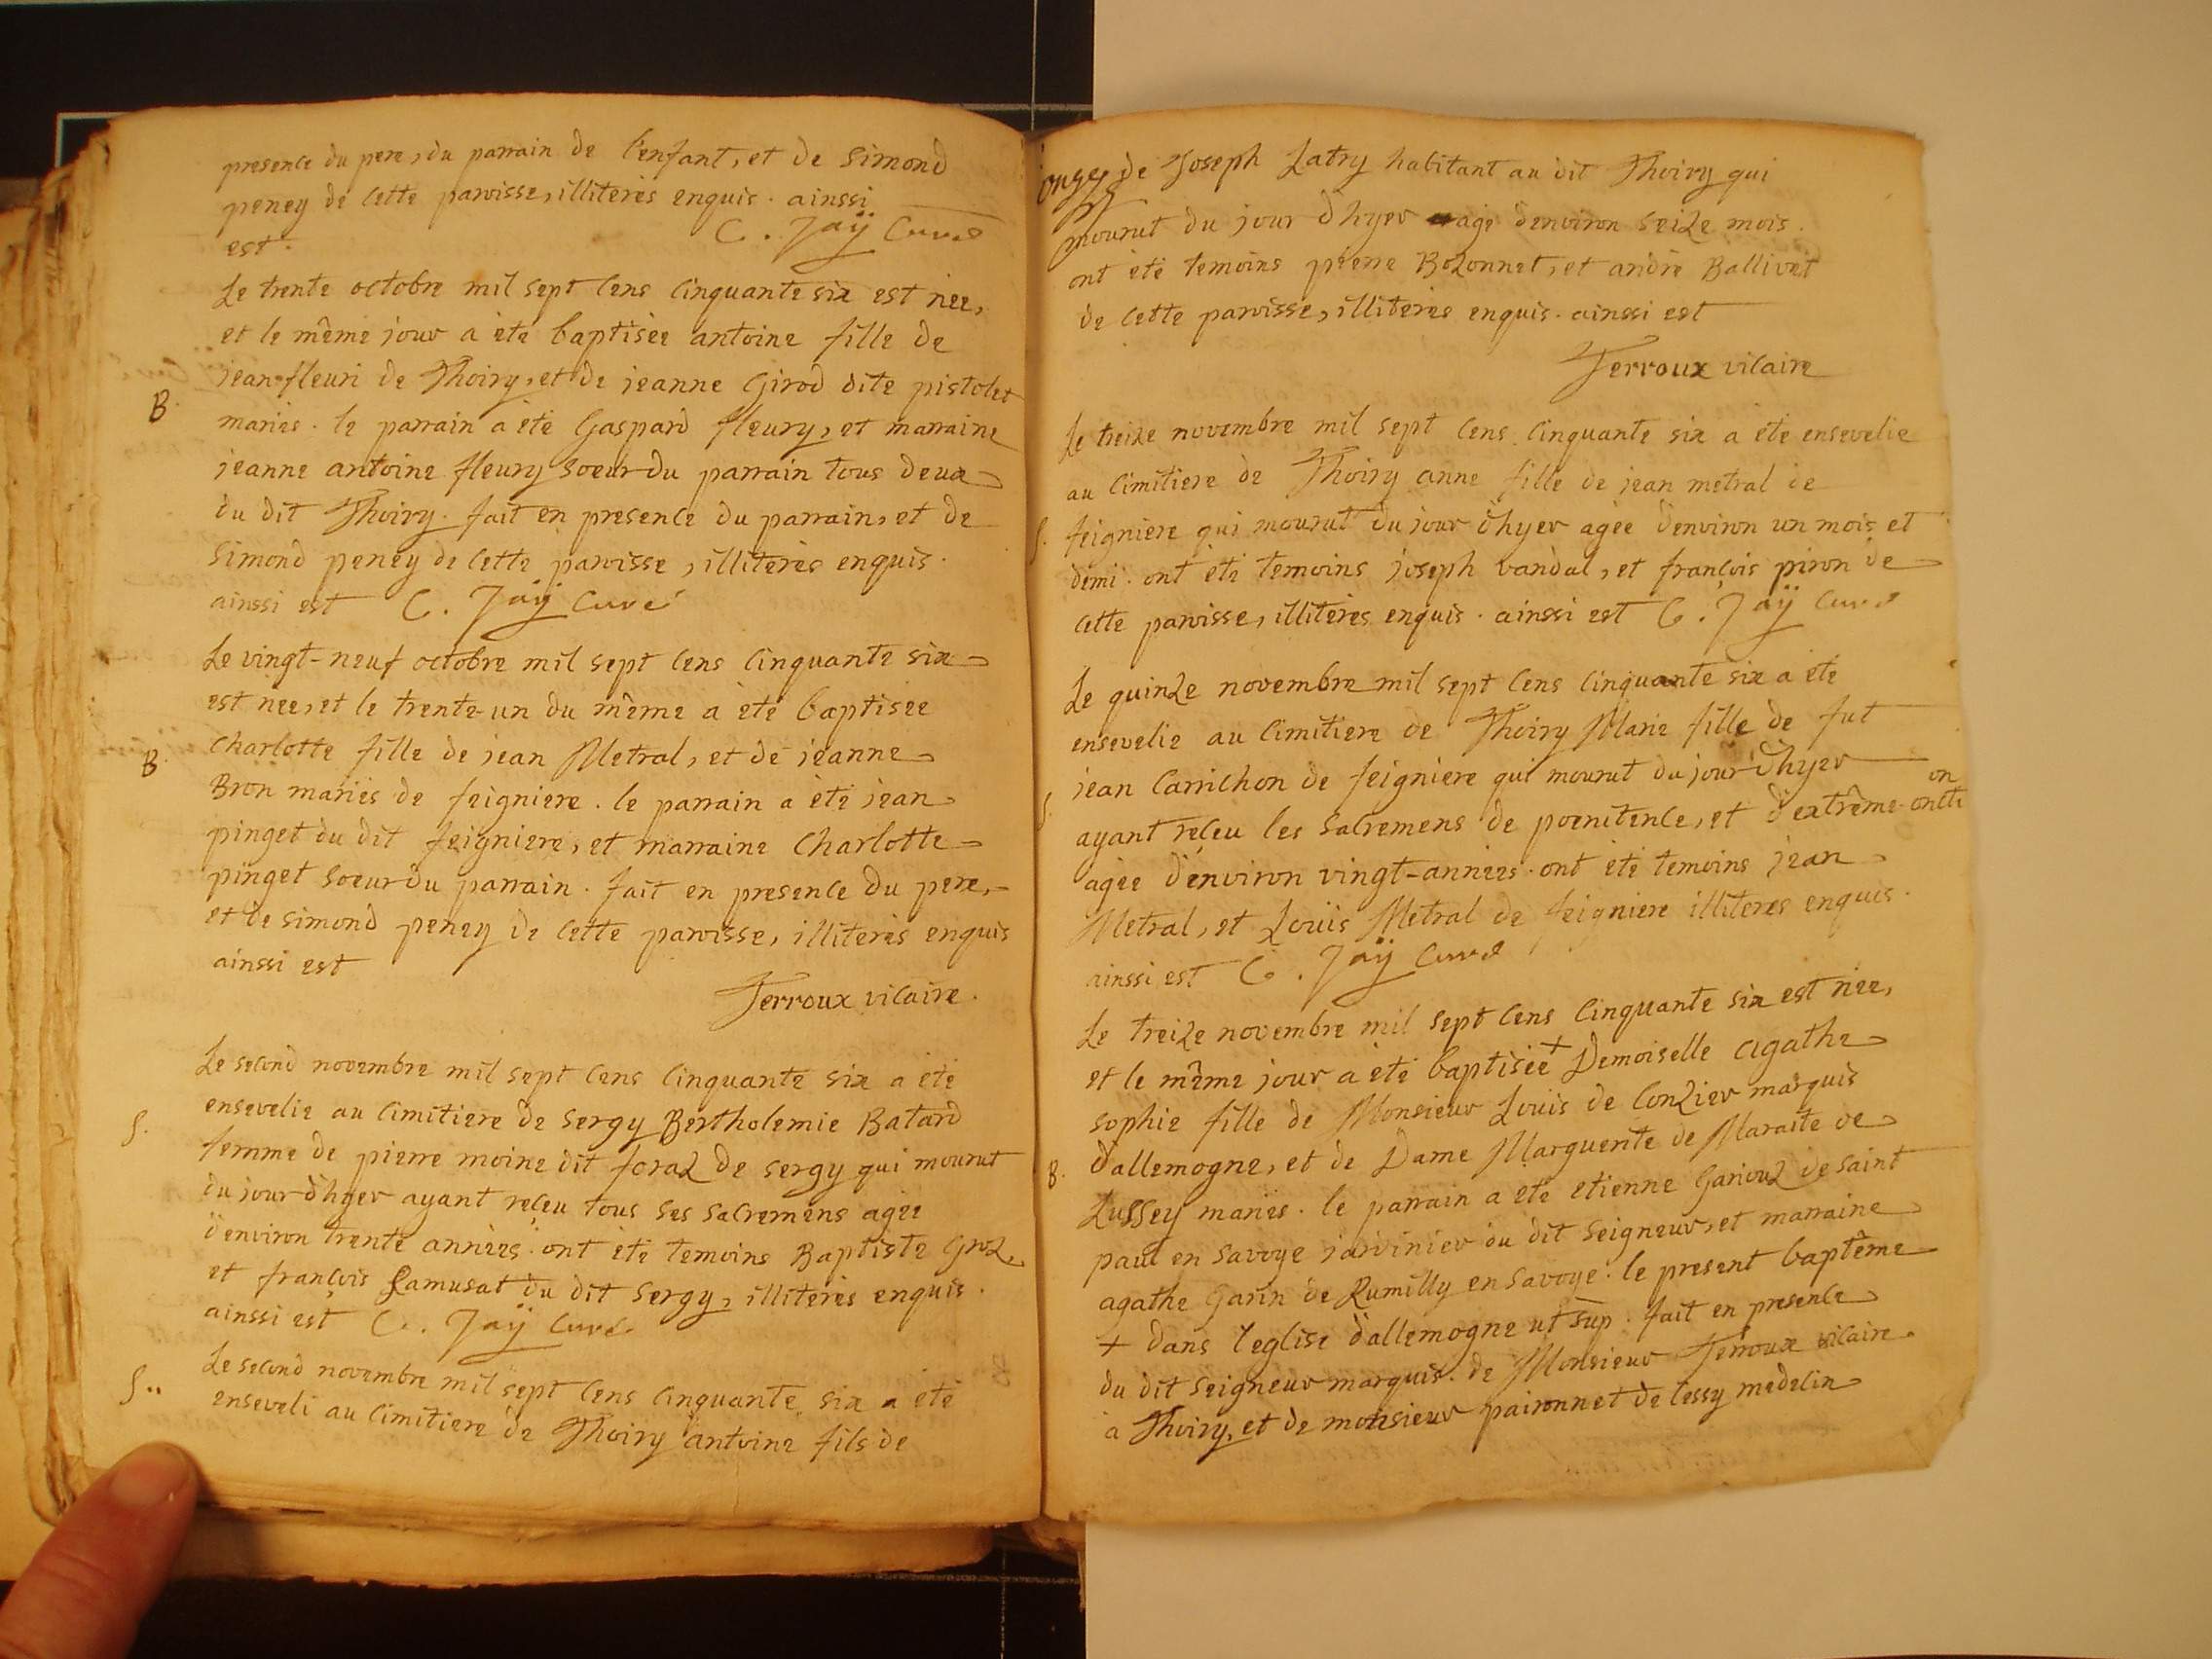 presence du pere, du parrain de l'enfant, et de simond
peney de cette paroisse, illiterès enquis. ainssi
est. C. Jaÿ Curé
Le trente octobre mil sept cens cinquante six est nèe,
et le même jour a èté baptisèe antoine fille de
jean fleuri de Thoiry, et de jeanne Girod dite pistolet
B.
mariès. le parrain a èté Gaspard fleury, et marraine
jeanne antoine fleury soeur du parrain tous deux
du dit Thoiry. fait en presence du parrain, et de
simond peney de cette paroisse, illiterès enquis.
ainssi est C. Jaÿ Curé
Le vingt-neuf octobre mil sept cens cinquante six
est nèe, et le trente-un du même a èté baptisèe
B.
Charlotte fille de jean Metral, et de jeanne
Bron mariès de feigniere. le parrain a èté jean
pinget du dit feigniere, et marraine Charlotte
pinget soeur du parrain. fait en presence du pere,
et de simond peney de cette paroisse, illiterès enquis
ainssi est
Ferroux vicaire.
Le second novembre mil sept cens cinquante six a èté
ensevelie au cimitiere de sergy Bertholemie Batard
S.
femme de pierre moine dit foraz de sergy qui mourut
du jour d'hyer ayant reçeu tous ses sacremens agèe
d'environ trente annèes. ont èté temoins Baptiste Groz
et françois Ramusat du dit sergy, illiterès enquis.
ainssi est C. Jaÿ Curé
Le second novembre mil sept cens cinquante six a èté
S..
enseveli au cimitiere de Thoiry antoine fils de
de Joseph Latry habitant au dit Thoiry qui
mourut du jour d'hyer agè d'environ seize mois.
ont èté temoins pierre Bozonnet, et andrè Ballivet
de cette paroisse, illiterès enquis. ainssi est
Ferroux vicaire
Le treize novembre mil sept cens cinquante six a èté ensevelie
au cimitiere de Thoiry anne fille de jean metral de
S.
feigniere qui mourut du jour d'hyer agèe d'environ un mois et
demi. ont èté temoins joseph vandal, et françois piron de
cette paroisse, illiterès enquis. ainssi est C. Jaÿ Curé
Le quinze novembre mil sept cens cinquante six a èté
ensevelie au cimitiere de Thoiry Marie fille de fut
jean Carrichon de feigniere qui mourut du jour d'hyer
S.
ayant reçeu les sacremens de poenitence, et d'extrême-onction
agèe d'environ vingt-annèes. ont èté temoins jean
Metral, et Loüis Metral de feigniere illiteres enquis.
ainssi est C. Jaÿ Curé
Le treize novembre mil sept cens cinquante six est nèe,
et le même jour a èté baptisèe + Demoiselle agathe
sophie fille de Monsieur Louis de Conzier marquis
B.
d'allemogne, et de Dame Marguerite de Maraite de
Lussey mariès. le parrain a èté etienne Garioux de saint
paul en savoye jardinier du dit seigneur, et marraine
agathe Garin de Rumilly en savoye. le present baptême
+ dans l'eglise d'allemogne ut sup. fait en presence
du dit seigneur marquis. de Monsieur Ferroux vicaire
à Thoiry, et de monsieur paironnet de cessy medecin